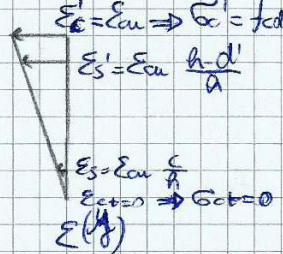 ε'c = εcu ⇒ σc' = fcd
εs' = εcu (h-d')/h
εs = εcu c/h
εct=0 ⇒ σct=0
ε(y)